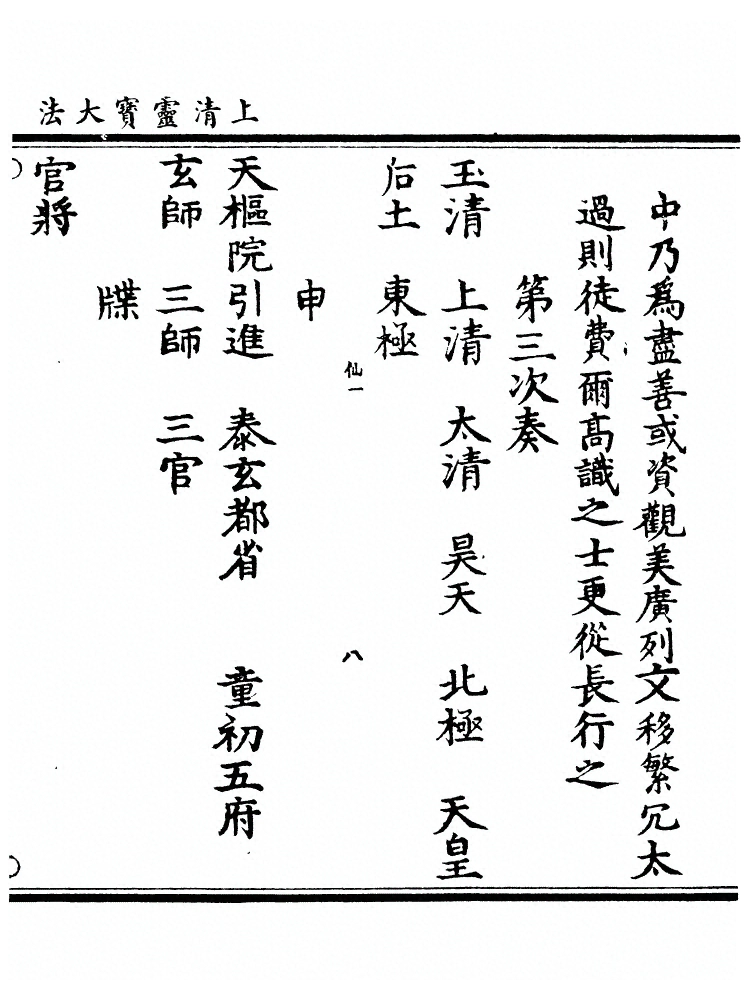 上清靈寶大法
中乃爲盡善或資觀美廣列文移繁冗太
過則徒費爾高識之士更從長行之
第三次奏
玉清　上清　太清　昊天　北極　天皇
后土　東極
仙一　八
申
天樞院引進　泰玄都省　童初五府
玄師　三師　三官
牒
官將